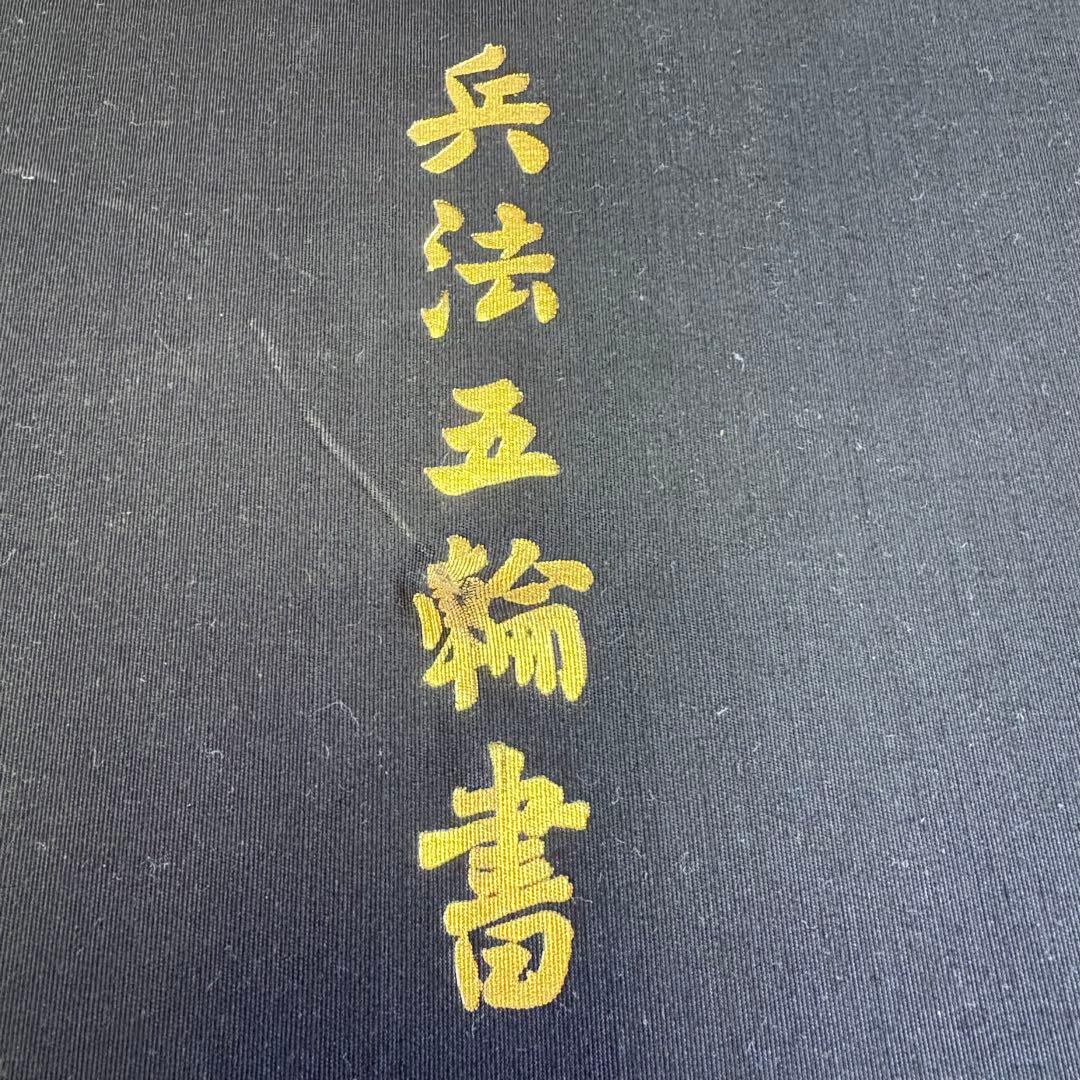 兵法五輪書